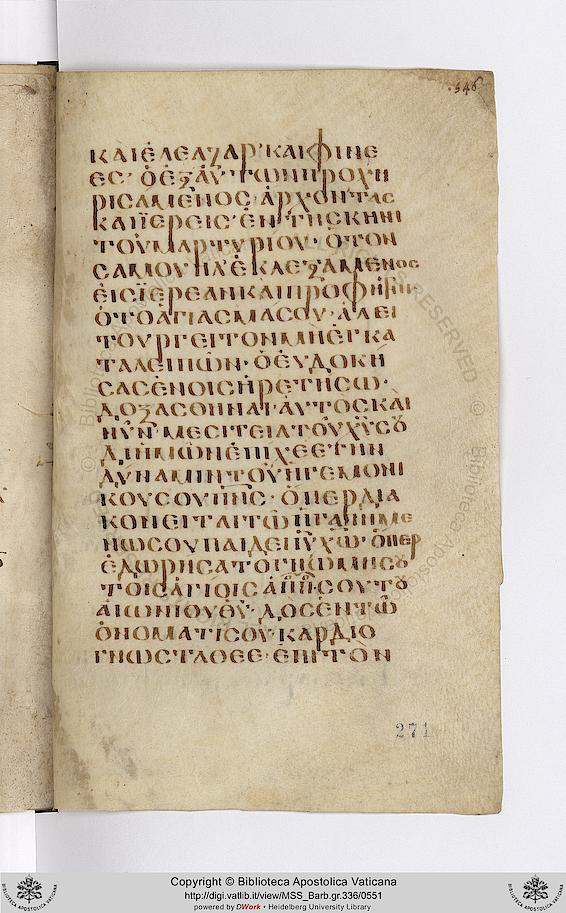 546
ΚΑΙ ΕΛΕΑΖΑΡ· ΚΑΙ ΦΙΝΕ
ΕϹ· Ο ΕΞ ΑΥΤΩΝ ΠΡΟΧΗ
ΡΙϹΑΜΕΝΟϹ ΑΡΧΟΝΤΑϹ
ΚΑΙ ΪΕΡΕΙϹ· ΕΝ ΤΗ ϹΚΗΝΗ
ΤΟΥ ΜΑΡΤΥΡΙΟΥ· Ο ΤΟΝ
ϹΑΜΟΥΗΛ ΕΚΛΕΞΑΜΕΝΟϹ
ΕΙϹ ΪΕΡΕΑΝ ΚΑΙ ΠΡΟΦΗΤΗΝ
Ο ΤΟ ΑΓΙΑϹΜΑ ϹΟΥ· ΑΛΕΙ
ΤΟΥΡΓΕΙΤΟΝ ΜΗ ΕΓΚΑ
ΤΑΛΕΙΠΩΝ· Ο ΕΥΔΟΚΗ
ϹΑϹ ΕΝ ΟΙϹ ΗΡΕΤΗϹΩ·
ΔΟΞΑϹΘΗΝΑΙ· ΑΥΤΟϹ ΚΑΙ
ΝΥΝ ΜΕϹΙΤΕΙΑ ΤΟΥ Χ̅Υ̅ ϹȢ
ΔΙ ΗΜΩΝ ΕΠΙΧΕΕ ΤΗΝ
ΔΥΝΑΜΙΝ ΤΟΥ ΗΓΕΜΟΝΙ
ΚΟΥ ϹΟΥ Π̅Ν̅Ϲ̅· ΟΠΕΡ ΔΙΑ
ΚΟΝΕΙΤΑΙ ΤΩ ΗΓΑΠΗΜΕ
ΝΩ ϹΟΥ ΠΑΙΔΕΙ Ι̅Υ̅ Χ̅Ω̅· ΟΠΕΡ
ΕΔΩΡΗϹΑΤΟ ΓΝΩΜΗ ϹȢ
ΤΟΙϹ ΑΓΙΟΙϹ ϹΟΥ ΤȢ
ΑΙΩΝΙΟΥ Θ̅Υ̅· ΔΟϹ ΕΝ ΤΩ
ΟΝΟΜΑΤΙ ϹΟΥ· ΚΑΡΔΙΟ
ΓΝΩϹΤΑ ΘΕΕ· ΕΠΙ ΤΟΝ
271
Copyright © Biblioteca Apostolica Vaticana
http://digi.vatlib.it/view/MSS_Barb.gr.336/0551
powered by DWork • Heidelberg University Library